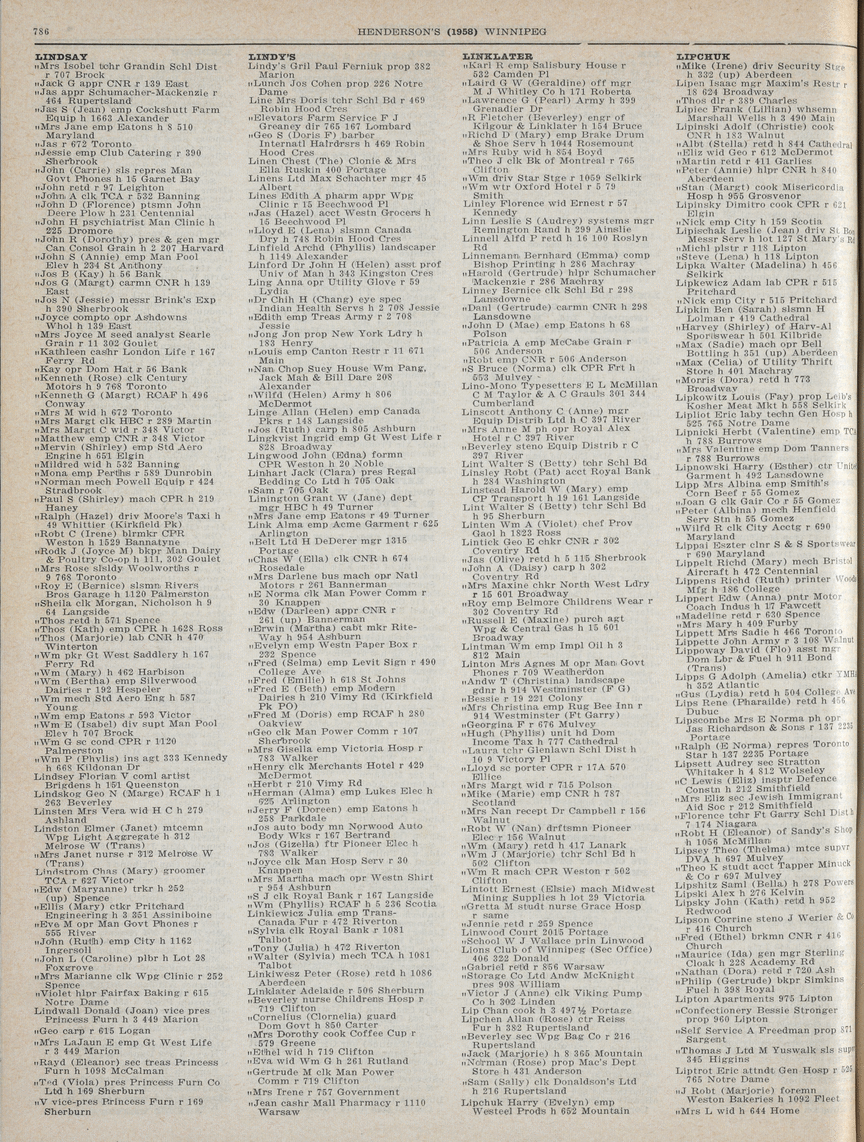 786
HENDERSON'S (1958) WINNIPEG
LINDSAY
"Mrs Isobel tchr Grandin Schl Dist
r 707 Brock
"Jack G appr CNR r 139 East
"Jas appr Schumacher-Mackenzie r
464 Rupertsland
"Jas S (Jean) emp Cockshutt Farm
Equip h 1663 Alexander
"Mrs Jane emp Eatons h 8 510
Maryland
"Jas r 672 Toronto
"Jessie emp Club Catering r 390
Sherbrook
"John (Carrie) sls repres Man
Govt Phones h 15 Garnet Bay
"John retd r 97 Leighton
"John A clk TCA r 532 Banning
"John D (Florence) ptsmn John
Deere Plow h 231 Centennial
"John H psychiatrist Man Clinic h
225 Dromore
"John R (Dorothy) pres & gen mgr
Can Consol Grain h 2 207 Harvard
"John S (Annie) emp Man Pool
Elev h 234 St Anthony
"Jos B (Kay) h 56 Bank
"Jos G (Margt) carmn CNR h 139
East
"Jos N (Jessie) messr Brink's Exp
h 390 Sherbrook
"Joyce compto opr Ashdowns
Whol h 139 East
"Mrs Joyce M seed analyst Searle
Grain r 11 302 Goulet
"Kathleen cashr London Life r 167
Ferry Rd
"Kay opr Dom Hat r 56 Bank
"Kenneth (Rose) clk Century
Motors h 9 768 Toronto
"Kenneth G (Margt) RCAF h 496
Conway
"Mrs M wid h 672 Toronto
"Mrs Margt clk HBC r 289 Martin
"Mrs Margt C wid r 348 Victor
"Matthew emp CNR r 348 Victor
"Mervin (Shirley) emp Std Aero
Engine h 651 Elgin
"Mildred wid h 532 Banning
"Mona emp Perths r 589 Dunrobin
"Norman mech Powell Equip r 424
Stradbrook
"Paul S (Shirley) mach CPR h 219
Haney
"Ralph (Hazel) driv Moore's Taxi h
49 Whittier (Kirkfield Pk)
"Robt C (Irene) blrmkr CPR
Weston h 1529 Bannatyne
"Rodk J (Joyce M) bkpr Man Dairy
& Poultry Co-op h 11, 302 Goulet
"Mrs Rose slsldy Woolworths r
9 768 Toronto
"Roy E (Bernice) slsmn Rivers
Bros Garage h 1120 Palmerston
"Sheila clk Morgan, Nicholson h 9
64 Langside
"Thos retd h 571 Spence
"Thos (Kath) emp CPR h 1628 Ross
"Thos (Marjorie) lab CNR h 470
Winterton
"Wm pkr Gt West Saddlery h 167
Ferry Rd
"Wm (Mary) h 462 Harbison
"Wm (Bertha) emp Silverwood
Dairies r 192 Hespeler
"Wm mech Std Aero Eng h 587
Young
"Wm emp Eatons r 593 Victor
"Wm E (Isabel) div supt Man Pool
Elev h 707 Brock
"Wm G sc cond CPR r 1120
Palmerston
"Wm P (Phylis) ins agt 333 Kennedy
h 668 Kildonan Dr
Lindsey Florian V coml artist
Brigdens h 151 Queenston
Lindskog Geo N (Marge) RCAF h 1
263 Beverley
Linsten Mrs Vera wid H C h 279
Ashland
Lindston Elmer (Janet) mtcemn
Wpg Light Aggregate h 312
Melrose W (Trans)
"Mrs Janet nurse r 312 Melrose W
(Trans)
Lindstrom Chas (Mary) groomer
TCA r 627 Victor
"Edw (Maryanne) trkr h 252
(up) Spence
"Ellis (Mary) ctkr Pritchard
Engineering h 3 351 Assiniboine
"Eve M opr Man Govt Phones r
555 River
"John (Ruth) emp City h 1162
Ingersoll
"John L (Caroline) plbr h Lot 28
Foxgrove
"Mrs Marianne clk Wpg Clinic r 252
Spence
"Violet hlpr Fairfax Baking r 615
Notre Dame
Lindwall Donald (Joan) vice pres
Princess Furn h 3 449 Marion
"Geo carp r 615 Logan
"Mrs LaJaun E emp Gt West Life
r 3 449 Marion
"Rayd (Eleanor) sec treas Princess
Furn h 1098 McCalman
"Ted (Viola) pres Princess Furn Co
Ltd h 169 Sherburn
"V vice-pres Princess Furn r 169
Sherburn
LINDY'S
Lindy's Gril Paul Ferniuk prop 382
Marion
"Lunch Jos Cohen prop 226 Notre
Dame
Line Mrs Doris tchr Schl Bd r 469
Robin Hood Cres
"Elevators Farm Service F J
Greaney dir 765 167 Lombard
"Geo S (Doris F) barber
Internatl Halrdrsrs h 469 Robin
Hood Cres
Linen Chest (The) Clonie & Mrs
Ella Ruskin 400 Portage
Linens Ltd Max Schachter mgr 45
Albert
Lines Edith A pharm appr Wpg
Clinic r 15 Beechwood Pl
"Jas (Hazel) acct Westn Grocers h
15 Beechwood Pl
"Lloyd E (Lena) slsmn Canada
Dry h 748 Robin Hood Cres
Linfield Archd (Phyllis) landscaper
h 1149 Alexander
Linford Dr John H (Helen) asst prof
Univ of Man h 343 Kingston Cres
Ling Anna opr Utility Glove r 59
Lydia
"Dr Chih H (Chang) eye spec
Indian Health Servs h 2 708 Jessie
"Edith emp Treas Army r 2 708
Jessie
"Jong Jon prop New York Ldry h
183 Henry
"Louis emp Canton Restr r 11 671
Main
"Nan Chop Suey House Wm Pang,
Jack Mah & Bill Dare 208
Alexander
"Wilfd (Helen) Army h 806
McDermot
Linge Allan (Helen) emp Canada
Pkrs r 148 Langside
"Jos (Ruth) carp h 805 Ashburn
Lingkvist Ingrid emp Gt West Life r
828 Broadway
Lingwood John (Edna) formn
CPR Weston h 20 Noble
Linhart Jack (Clara) pres Regal
Bedding Co Ltd h 705 Oak
"Sam r 705 Oak
Linington Grant W (Jane) dept
mgr HBC h 49 Turner
"Mrs Jane emp Eatons r 49 Turner
Link Alma emp Acme Garment r 625
Arlington
"Belt Ltd H DeDerer mgr 1315
Portage
"Chas W (Ella) clk CNR h 674
Rosedale
"Mrs Darlene bus mach opr Natl
Motors r 261 Bannerman
"E Norma clk Man Power Comm r
30 Knappen
"Edw (Darleen) appr CNR r
261 (up) Bannerman
"Erwin (Martha) cabt mkr Rite-
Way h 954 Ashburn
"Evelyn emp Westn Paper Box r
232 Spence
"Fred (Selma) emp Levit Sign r 490
College Ave
"Fred (Emilie) h 618 St Johns
"Fred E (Beth) emp Modern
Dairies h 210 Vimy Rd (Kirkfield
Pk PO)
"Fred M (Doris) emp RCAF h 280
Oakview
"Geo clk Man Power Comm r 107
Sherbrook
"Mrs Gisella emp Victoria Hosp r
783 Walker
"Henry clk Merchants Hotel r 429
McDermot
"Herbt r 210 Vimy Rd
"Herman (Alma) emp Lukes Elec h
625 Arlington
"Jerry F (Doreen) emp Eatons h
258 Parkdale
"Jos auto body mn Norwood Auto
Body Wks r 167 Bertrand
"Jos (Gizella) ftr Pioneer Elec h
783 Walker
"Joyce clk Man Hosp Serv r 30
Knappen
"Mrs Martha mach opr Westn Shirt
r 954 Ashburn
"S J clk Royal Bank r 167 Langside
"Wm (Phyllis) RCAF h 5 236 Scotia
Linkiewicz Julia emp Trans-
Canada Fur r 472 Riverton
"Sylvia clk Royal Bank r 1081
Talbot
"Tony (Julia) h 472 Riverton
"Walter (Sylvia) mech TCA h 1081
Talbot
Linkiwesz Peter (Rose) retd h 1086
Aberdeen
Linklater Adelaide r 506 Sherburn
"Beverley nurse Childrens Hosp r
719 Clifton
"Cornelius (Clornelia) guard
Dom Govt h 850 Carter
"Mrs Dorothy cook Coffee Cup r
579 Greene
"Ethel wid h 719 Clifton
"Eva wid Wm G h 261 Rutland
"Gertrude M clk Man Power
Comm r 719 Clifton
"Mrs Irene r 757 Government
"Jean cashr Mall Pharmacy r 1110
Warsaw
LINKLATER
"Karl R emp Salisbury House r
532 Camden Pl
"Laird G W (Geraldine) off mgr
M J Whitley Co h 171 Roberta
"Lawrence G (Pearl) Army h 399
Grenadier Dr
"R Fletcher (Beverley) engr of
Kilgour & Linklater h 154 Bruce
"Richd D (Mary) emp Brake Drum
& Shoe Serv h 1044 Rosemount
"Mrs Ruby wid h 854 Boyd
"Theo J clk Bk of Montreal r 765
Clifton
"Wm driv Star Stge r 1059 Selkirk
"Wm wtr Oxford Hotel r 5 79
Smith
Linley Florence wid Ernest r 57
Kennedy
Linn Leslie S (Audrey) systems mgr
Remington Rand h 299 Ainslie
Linnell Alfd P retd h 16 100 Roslyn
Rd
Linnemann Bernhard (Emma) comp
Bishop Printing h 286 Machray
"Harold (Gertrude) hlpr Schumacher
Mackenzie r 286 Machray
Linney Bernice clk Schl Bd r 298
Lansdowne
"Danl (Gertrude) carmn CNR h 298
Lansdowne
"John D (Mae) emp Eatons h 68
Polson
"Patricia A emp McCabe Grain r
506 Anderson
"Robt emp CNR r 506 Anderson
"S Bruce (Norma) clk CPR Frt h
553 Mulvey
Lino-Mono Typesetters E L McMillan
C M Taylor & A C Grauls 301 344
Cumberland
Linscott Anthony C (Anne) mgr
Equip Distrib Ltd h C 397 River
"Mrs Anne M ph opr Royal Alex
Hotel r C 397 River
"Beverley steno Equip Distrib r C
397 River
Lint Walter S (Betty) tchr Schl Bd
Linsley Robt (Pat) acct Royal Bank
h 284 Washington
Linstead Harold W (Mary) emp
CP Transport h 19 161 Langside
Lint Walter S (Betty) tchr Schl Bd
h 95 Sherburn
Linten Wm A (Violet) chef Prov
Gaol h 1823 Ross
Lintick Geo E chkr CNR r 302
Coventry Rd
"Jas (Olive) retd h 5 115 Sherbrook
"John A (Daisy) carp h 302
Coventry Rd
"Mrs Maxine chkr North West Ldry
r 15 601 Broadway
"Roy emp Belmore Childrens Wear r
302 Coventry Rd
"Russell E (Maxine) purch agt
Wpg & Central Gas h 15 601
Broadway
Lintman Wm emp Impl Oil h 3
812 Main
Linton Mrs Agnes M opr Man Govt
Phones r 709 Weatherdon
"Andw T (Christina) landscape
gdnr h 914 Westminster (F G)
"Bessie r 19 221 Colony
"Mrs Christina emp Rug Bee Inn r
914 Westminster (Ft Garry)
"Georgina F r 676 Mulvey
"Hugh (Phyllis) unit hd Dom
Income Tax h 777 Cathedral
"Laura tchr Glenlawn Schl Dist h
10 9 Victory Pl
"Lloyd sc porter CPR r 17A 570
Ellice
"Mrs Margt wid r 715 Polson
"Mike (Marie) emp CNR h 787
Scotland
"Mrs Nan recept Dr Campbell r 156
Walnut
"Robt W (Nan) drftsmn Pioneer
Elec r 156 Walnut
"Wm (Mary) retd h 417 Lanark
"Wm J (Marjorie) tchr Schl Bd h
502 Clifton
"Wm R mach CPR Weston r 502
Clifton
Lintott Ernest (Elsie) mach Midwest
Mining Supplies h lot 29 Victoria
"Gretta M studt nurse Grace Hosp
r same
"Jennie retd r 259 Spence
Linwood Court 2015 Portage
"School W J Wallace prin Linwood
Lions Club of Winnipeg (Sec Office)
406 322 Donald
"Gabriel retd r 856 Warsaw
"Storage Co Ltd Andw McKnight
pres 908 William
"Victor J (Anne) clk Viking Pump
Co h 302 Linden
Lip Chan cook h 3 497½ Portage
Lipchen Allan (Rose) cr Reiss
Fur h 382 Rupertsland
"Beverley sec Wpg Bag Co r 216
Rupertsland
"Jack (Marjorie) h 8 365 Mountain
"Norman (Rose) prop Mac's Dept
Store h 431 Anderson
"Sam (Sally) clk Donaldson's Ltd
h 216 Rupertsland
Lipchuk Harry (Evelyn) emp
Westeel Prods h 652 Mountain
LIPCHUK
"Mike (Irene) driv Security Stge
h 332 (up) Aberdeen
Lipen Isaac mgr Maxim's Restr r
18 624 Broadway
"Thos dlr r 389 Charles
Lipiec Frank (Lillian) whsemn
Marshall Wells h 3 490 Main
Lipinski Adolf (Christie) cook
CNR h 183 Walnut
"Albt (Stella) retd h 844 Cathedral
"Eliz wid Geo r 612 McDermot
"Martin retd r 411 Garlies
"Peter (Annie) hlpr CNR h 840
Aberdeen
"Stan (Margt) cook Misericordia
Hosp h 955 Grosvenor
Lipinsky Dimitro cook CPR r 621
Elgin
"Nick emp City h 159 Scotia
Lipischak Leslie (Jean) driv St Bon
Messr Serv h lot 127 St Mary's Rd
"Michl plstr r 118 Lipton
"Steve (Lena) h 118 Lipton
Lipka Walter (Madelina) h 456
Selkirk
Lipkewicz Adam lab CPR r 515
Pritchard
"Nick emp City r 515 Pritchard
Lipkin Ben (Sarah) slsmn H
Lolman r 419 Cathedral
"Harvey (Shirley) of Harv-Al
Sportswear h 501 Kilbride
"Max (Sadie) mach opr Bell
Bottling h 351 (up) Aberdeen
"Max (Celia) of Utility Thrift
Store h 401 Machray
"Morris (Dora) retd h 773
Broadway
Lipkowitz Louis (Fay) prop Leib's
Kosher Meat Mkt h 558 Selkirk
Lipliot Eric laby techn Gen Hosp h
525 765 Notre Dame
Lipnicki Herbt (Valentine) emp TCA
h 788 Burrows
"Mrs Valentine emp Dom Tanners
r 788 Burrows
Lipnowski Harry (Esther) ctr Unite
Garment h 492 Lansdowne
Lipp Mrs Albina emp Smith's
Corn Beef r 55 Gomez
"Joan G clk Gair Co r 55 Gomez
"Peter (Albina) mech Henfield
Serv Stn h 55 Gomez
"Wilfd R clk City Acctg r 690
Maryland
Lippai Eszter clnr S & S Sportswear
r 690 Maryland
Lippelt Richd (Mary) mech Bristol
Aircraft h 472 Centennial
Lippens Richd (Ruth) printer Woods
Mfg h 186 College
Lippert Edw (Anna) pntr Motor
Coach Indus h 17 Fawcett
"Madeline retd r 630 Spence
"Mrs Mary h 409 Furby
Lippett Mrs Sadie h 466 Toronto
Lippette John Army r 3 108 Walnut
Lippoway David (Flo) asst mgr
Dom Lbr & Fuel h 911 Bond
(Trans)
Lipps G Adolph (Amelia) ctkr YMHA
h 352 Atlantic
"Gus (Lydia) retd h 504 College Ave
Lips Rene (Pharailde) retd h 456
Dubuc
Lipscombe Mrs E Norma ph opr
Jas Richardson & Sons r 137 2235
Portage
"Ralph (E Norma) repres Toronto
Star h 137 2235 Portage
Lipsett Audrey sec Stratton
Whitaker h 4 812 Wolseley
"C Lewis (Eliz) insptr Defence
Constn h 212 Smithfield
"Mrs Eliz sec Jewish Immigrant
Aid Soc r 212 Smithfield
"Florence tchr Ft Garry Schl Dist h
7 174 Niagara
"Robt H (Eleanor) of Sandy's Shop
h 1056 McMillan
Lipsey Theo (Thelma) mtce supvr
DVA h 697 Mulvey
"Theo K studt acct Tapper Minuck
& Co r 697 Mulvey
Lipshitz Saml (Bella) h 278 Powers
Lipski Alex h 276 Kelvin
Lipsky John (Kath) retd h 952
Redwood
Lipson Corrine steno J Werier & Co
r 416 Church
"Fred (Ethel) brkmn CNR r 416
Church
"Maurice (Ida) gen mgr Sterling
Cloak h 228 Academy Rd
"Nathan (Dora) retd r 720 Ash
"Philip (Gertrude) bkpr Simkins
Fuel h 398 Royal
Lipton Apartments 975 Lipton
"Confectionery Bessie Stronger
prop 960 Lipton
"Self Service A Freedman prop 871
Sargent
"Thomas J Ltd M Yuswalk sls supt
345 Higgins
Liptrot Eric attndt Gen Hosp r 525
765 Notre Dame
"J Robt (Marjorie) foremn
Weston Bakeries h 1092 Fleet
"Mrs L wid h 644 Home